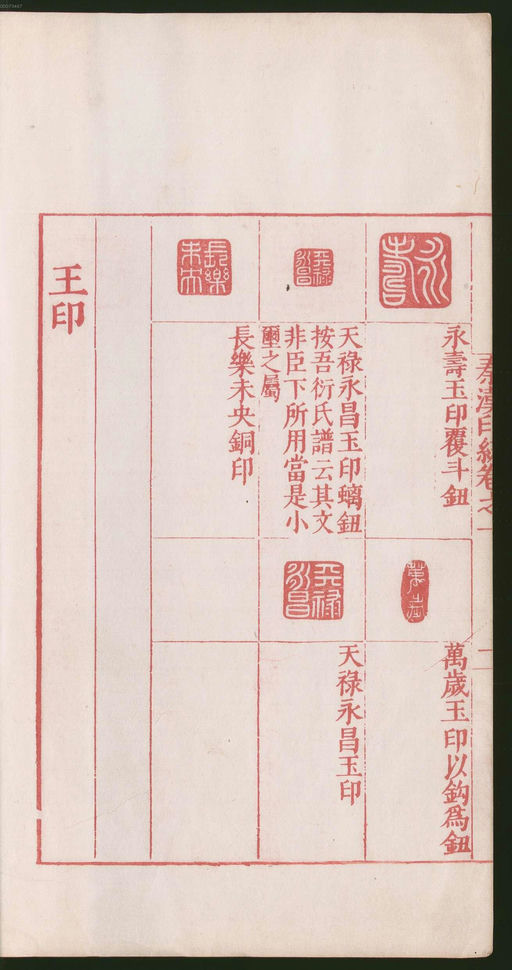 秦漢印統卷之一
二
永壽
永壽玉印覆斗鈕
萬歲
萬歲玉印以鈎爲鈕
天祿永昌
天祿永昌玉印螭鈕
按吾衍氏譜云其文
非臣下所用當是小
璽之屬
天祿永昌
天祿永昌玉印
長樂未央
長樂未央銅印
王印